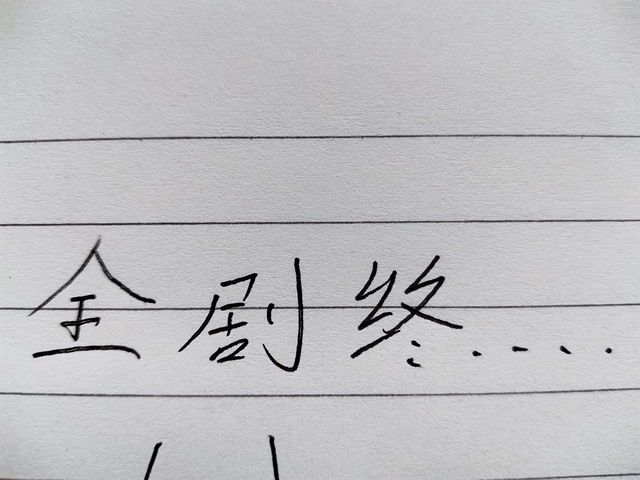 全剧终....